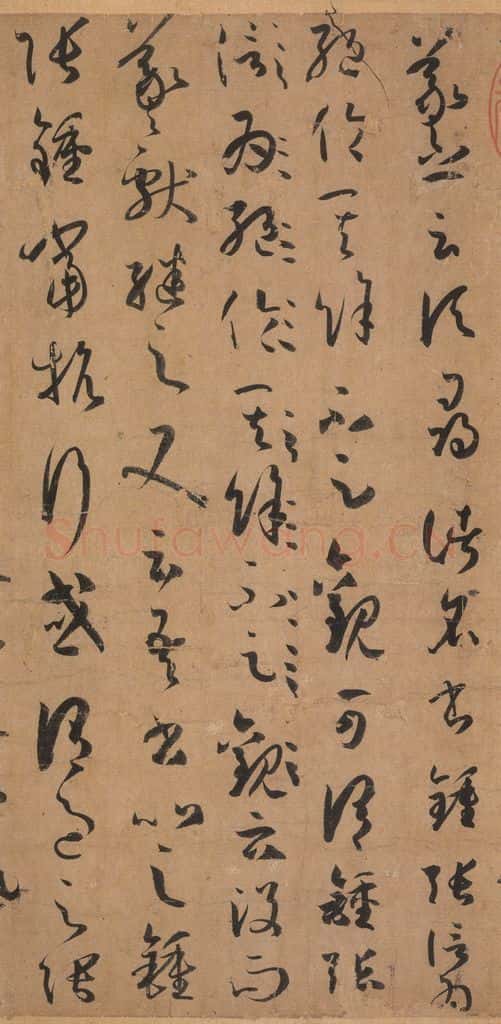 羲之云頃尋諸名書鍾張信為
絕倫其餘不足觀可謂鍾張
信為絕倫其餘不足觀云沒而
羲獻繼之又云吾書比之鍾
張鍾當抗行或謂過之張
Shufawang.cn